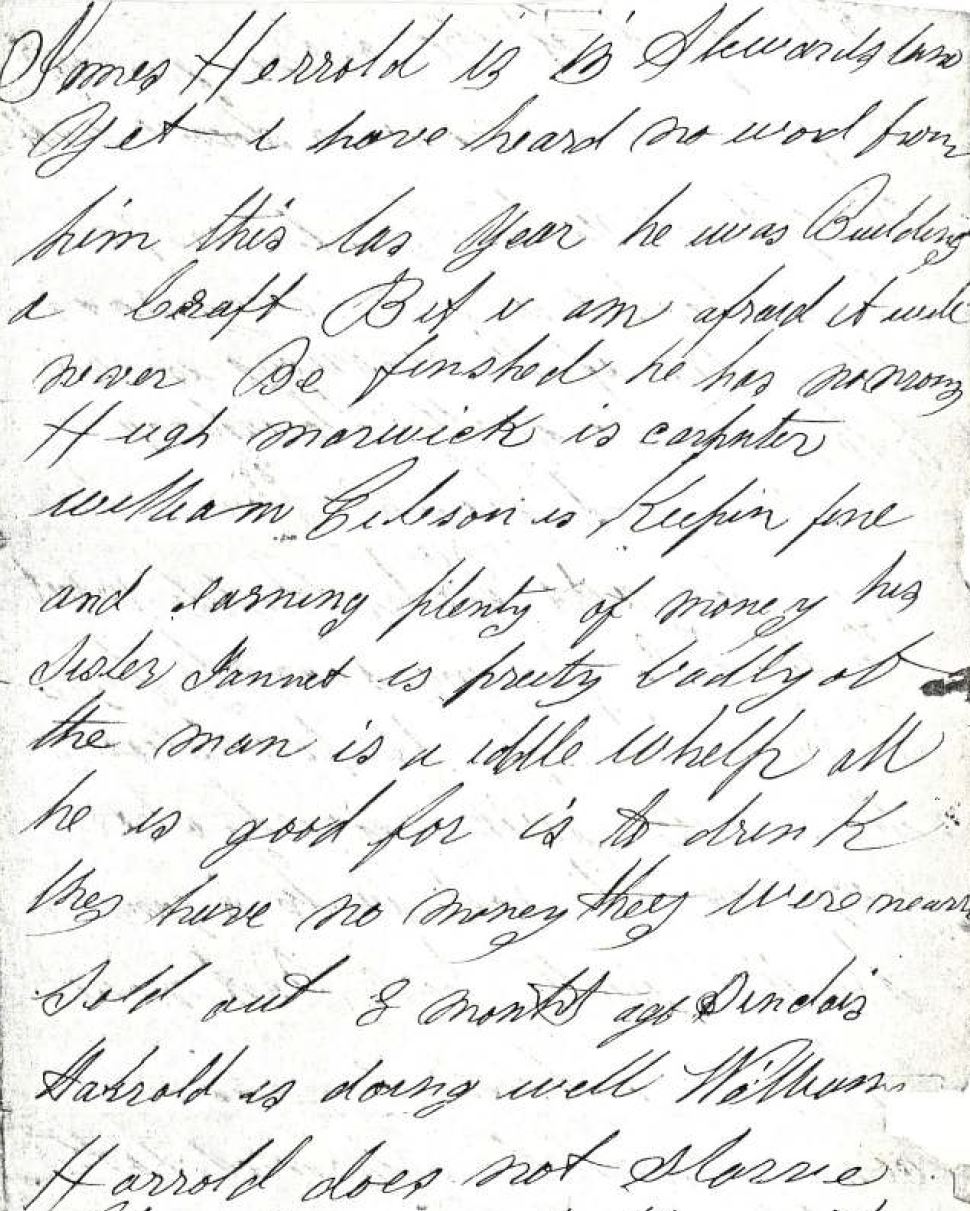 James Herrold is in Stewards land
Yet i have heard no word from
him this las year he was Building
a Craft But i am afraid it will
never Be finshed he has no mony
Hugh marwick is carpnter
william Gibeson is Keepin fine
and earning plenty of money his
Sister Jannet is preity badly of
the man is a iddle whelp all
he is good for is to drink
they have no money they were nearr
Sold out 8 months ago
Harrold is doing well William
Harrold does not starve